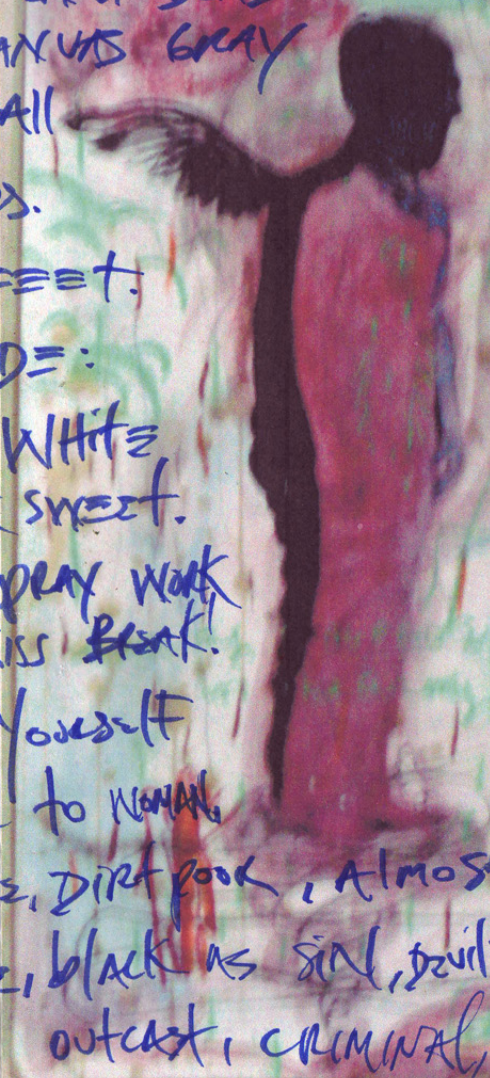 ANVAS GRAY
All
s.
FEET.
DE:
WHITE
SWEET.
PRAY WORK
ISS BREAK!
YOURSELF
to WOMAN,
E, DIRT POOR, ALMOS
E, black AS SIN, DEVIL
OUTCAST, CRIMINAL,